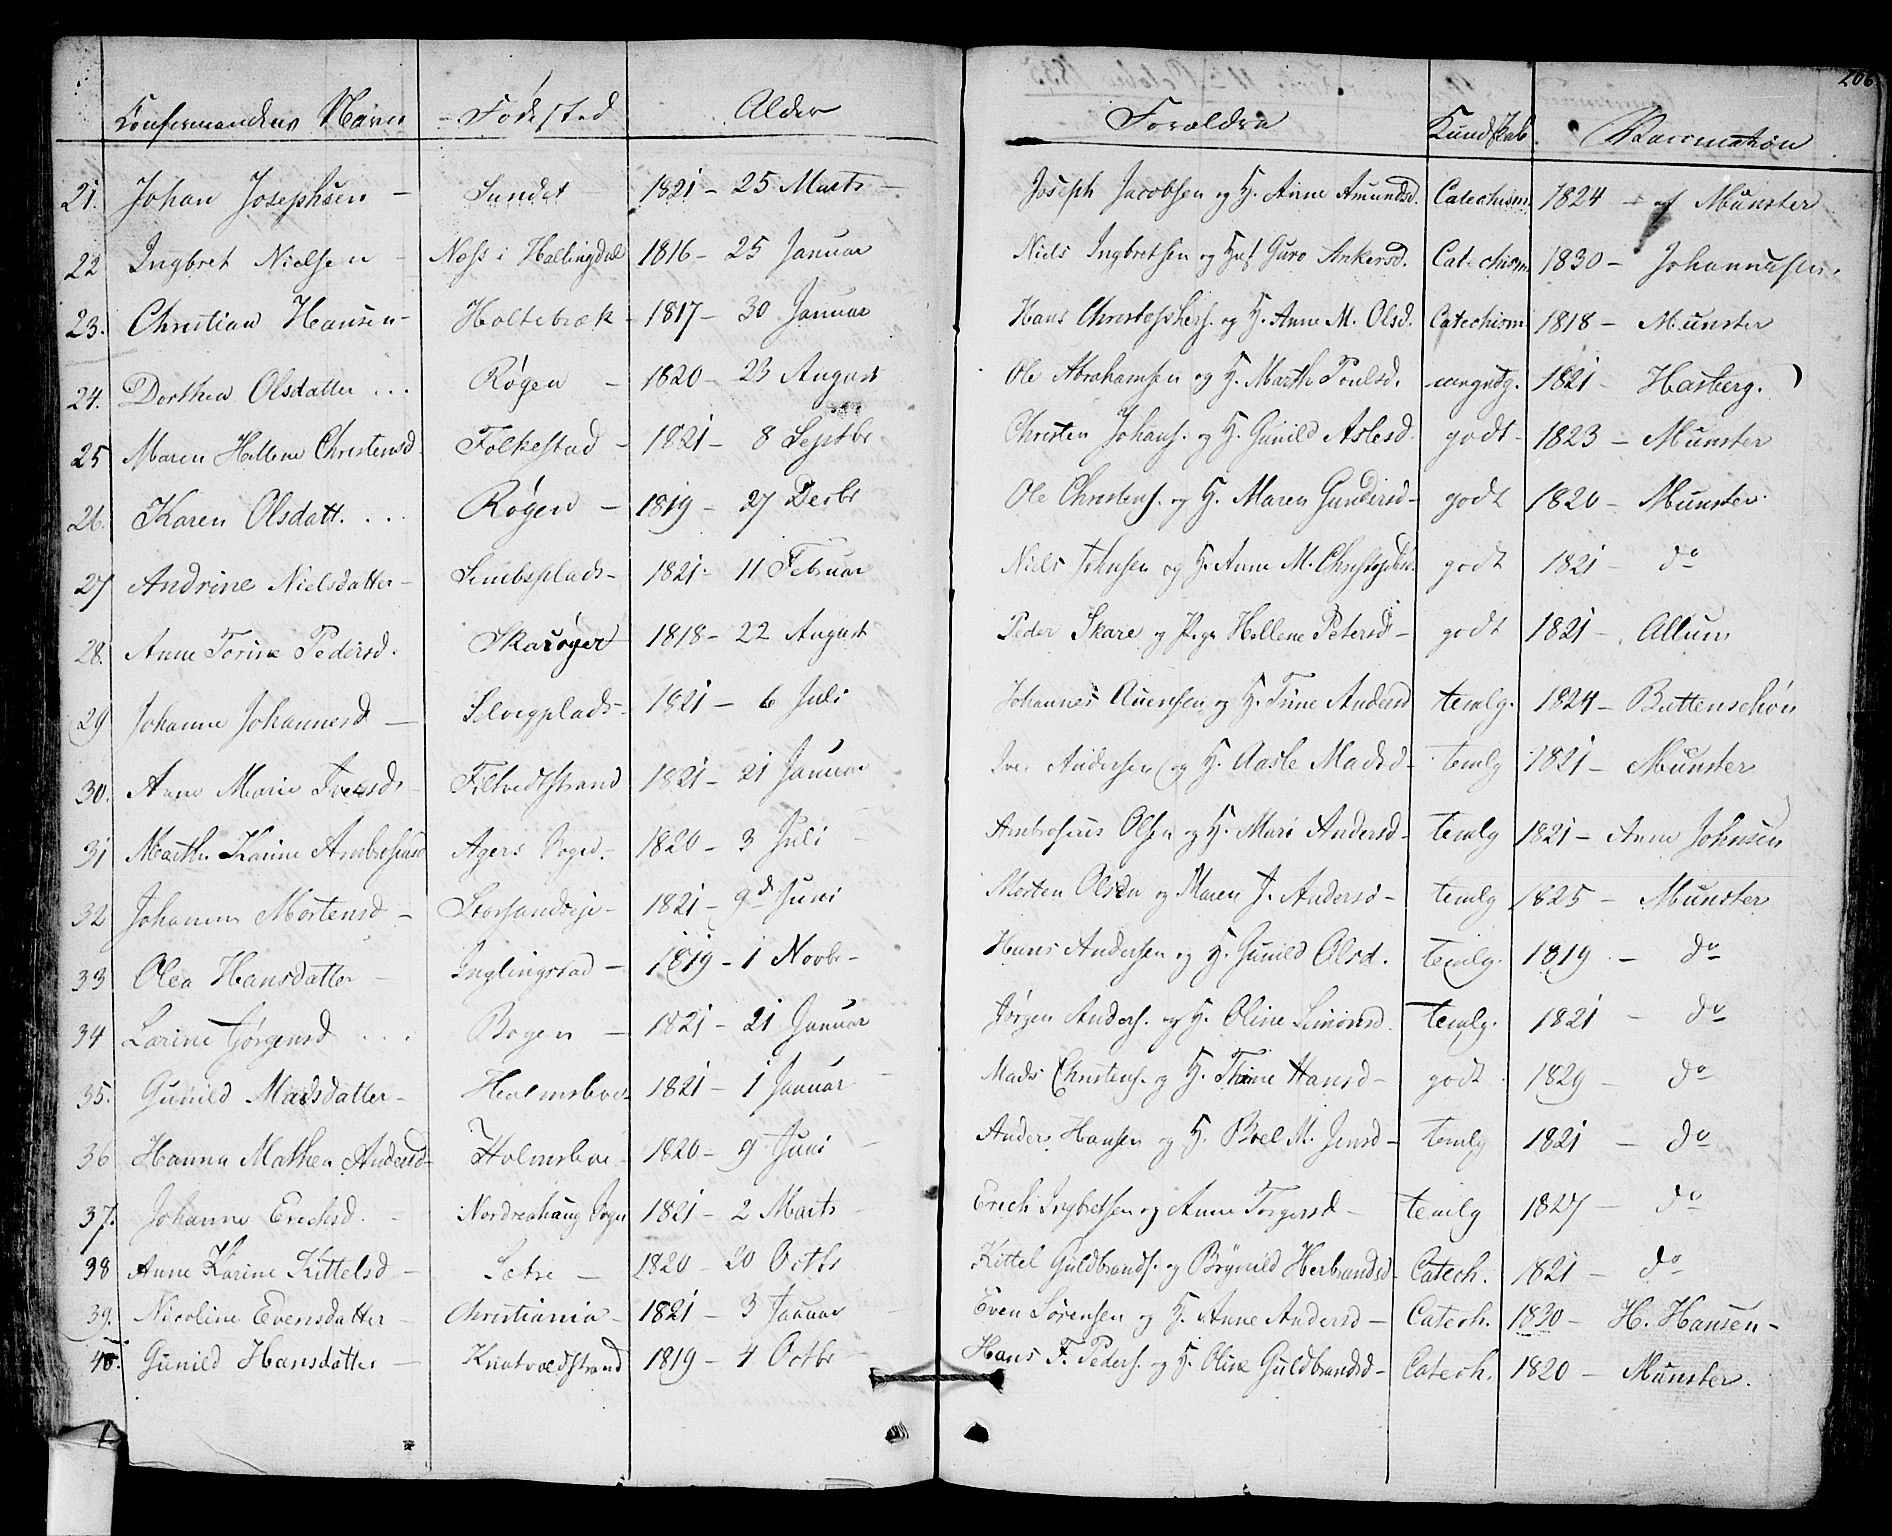 206
Konfirmandens Navn - Fødested Alder Forældre Kundskab Vaccination
21. Johan Josephsen - Sundet 1821 - 25 Marts - Joseph Jacobsen og H. Anne Amundsd. Catechism. 1824 - af Munster
22 Ingbret Nielsen - Næss i Hallingdal 1816 - 25 Januar Niels Ingbretsen og Guro Ankersd. Catechism 1830 - Johannesen.
23. Christian Hansen - Holtebræk - 1817 - 30 Januar Hans Christophers. og H. Anne M. Olsd. Catechism 1818 - Munster
24. Dorthea Olsdatter ... Røgen - 1820 - 23 August Ole Abrahamsen og H. Marthe Poulsd. 1821 - Hasberg.
25 Maren Hellene Christensd. Folkestad - 1821 - 8 Septbr Christen Johans. og H. Gunild Aslesd. godt - 1823 - Munster
26. Karen Olsdatt. ... Røgen - 1819 - 27 Decbr Ole Christens. og H. Maren Gundersd - godt 1820 - Munster.
27 Andrine Nielsdatter - 1821 - 11 Februar Niels Johnsen og H. Anne M. godt 1821 - do
28. Anne Torine Pedersd. Skarøger 1818 - 22 August Peder Skare og Hellene Petersd - godt 1821 - Allum
29 Johanne Johannesd - 1821 - 6 Juli Johannes og H. Trine Andersd temlg. 1824 - Buttenschøn
30. Anne Marie Filtvedtstrand 1821 - 21 Januar Iver Andersen og H. Aasle Madsd - temlg 1821 - Munster
31 Marthe Karine Agers Sogn - 1820 - 3 Juli Ambrosius Olsen og H. Mari Andersd - temlg 1821 - Anne Johnsen
32 Johanne Mortensd - Storsandseje - 1821 - 9d Juni Morten Olsen og Maren J. Andersd - temlg 1825 - Munster
33 Olea Hansdatter - 1819 - 1 Novbr - Hans Andersen og H. Gunild Olsd. temlg. 1819 - do
34 Larine Jørgensd ... Bogen - 1821 - 21 Januar Jørgen Anders. og H. Oline Simonsd. temlg. 1821 - do
35. Gunild Madsdatter - 1821 - 1 Januar Mads Christens. og H. Thrine Hansd - godt. 1829 - do
36 Hanna Mathea Andersd - Holmsboe - 1820 - 9 Juni Anders Hansen og H. Boel M. Jensd - temlg 1821 - do
37. Johanne Erichsd. - Nordrehaug Sogn 1821 - 2 Marts - Erich Ingbretsen og Anne Torgersd - temlg 1827 - do
38 Anne Karine Kittelsd - Sætre - 1820 - 20 Octbr Kittel Guldbrands. og Brynild Herbrandsd - Catech. 1821 - do
39. Nicoline Evensdatter - Christiania - 1821 - 3 Januar Even Sørensen og H. Anne Andersd - Catech. 1830 - H. Hansen -
40. Gunild Hansdatter - Knatvoldstrand 1819 - 4 Octbr Hans F. Peders. og H. Oline Guldbrandsd - Catech. 1820 - Munster.